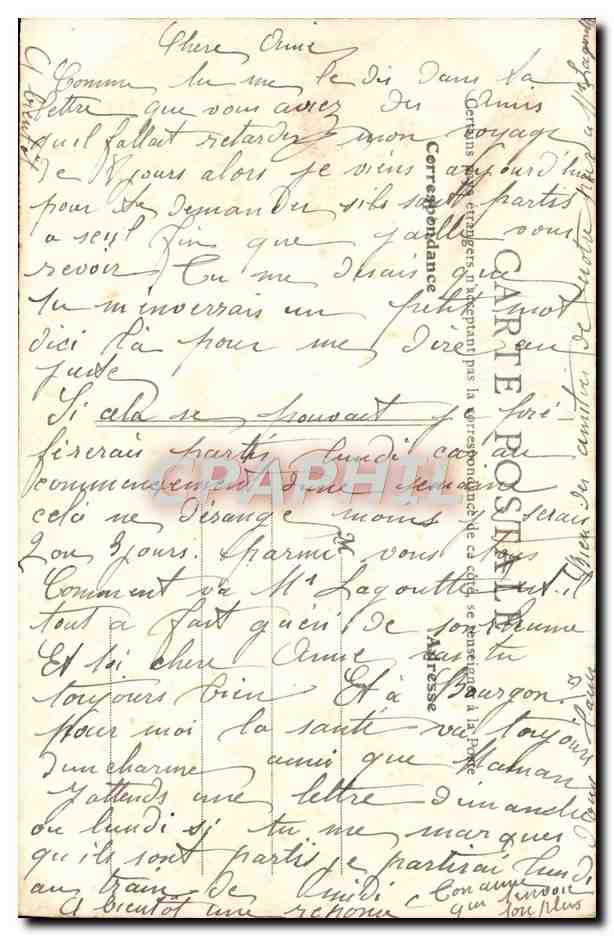 Chere Amie
Comme tu me le dis dans ta
lettre que vous aviez des Amis
qu'il fallait retarder mon voyage
de 8 jours alors je viens aujourd'hui
pour te demander s'ils sont partis
a seul fin que j'aille vous
revoir Tu me disais que
tu m'enverrais un petit mot
dici là pour me dire au
juste
Si cela se pouvait je pré
fererais partir lundi car au
commencement dune semaine
cela ne dérange moins je serais
2 ou 3 jours. parmi vous tous
Comment va Mr Lagoutte est-il
tout a fait guéri de son rhume
Et toi chere Amie vas tu
toujours bien Et à Bourgon
pour moi la santé va toujours
dun charme ainsi que Maman
J'attends une lettre Dimanche
ou lundi si tu me marques
qu'ils sont partis je partirai lundi
au train de Midi
A bientôt une reponse
Ton amie
qui t'envoie
son plus
bien des amitiés de notre part a Mr Lagoutte
A bientôt
CARTE POSTALE
Certains pays étrangers n'acceptant pas la correspondance de ce côté, se renseigner à la Poste
Correspondance
Adresse
M
CPAPHIL